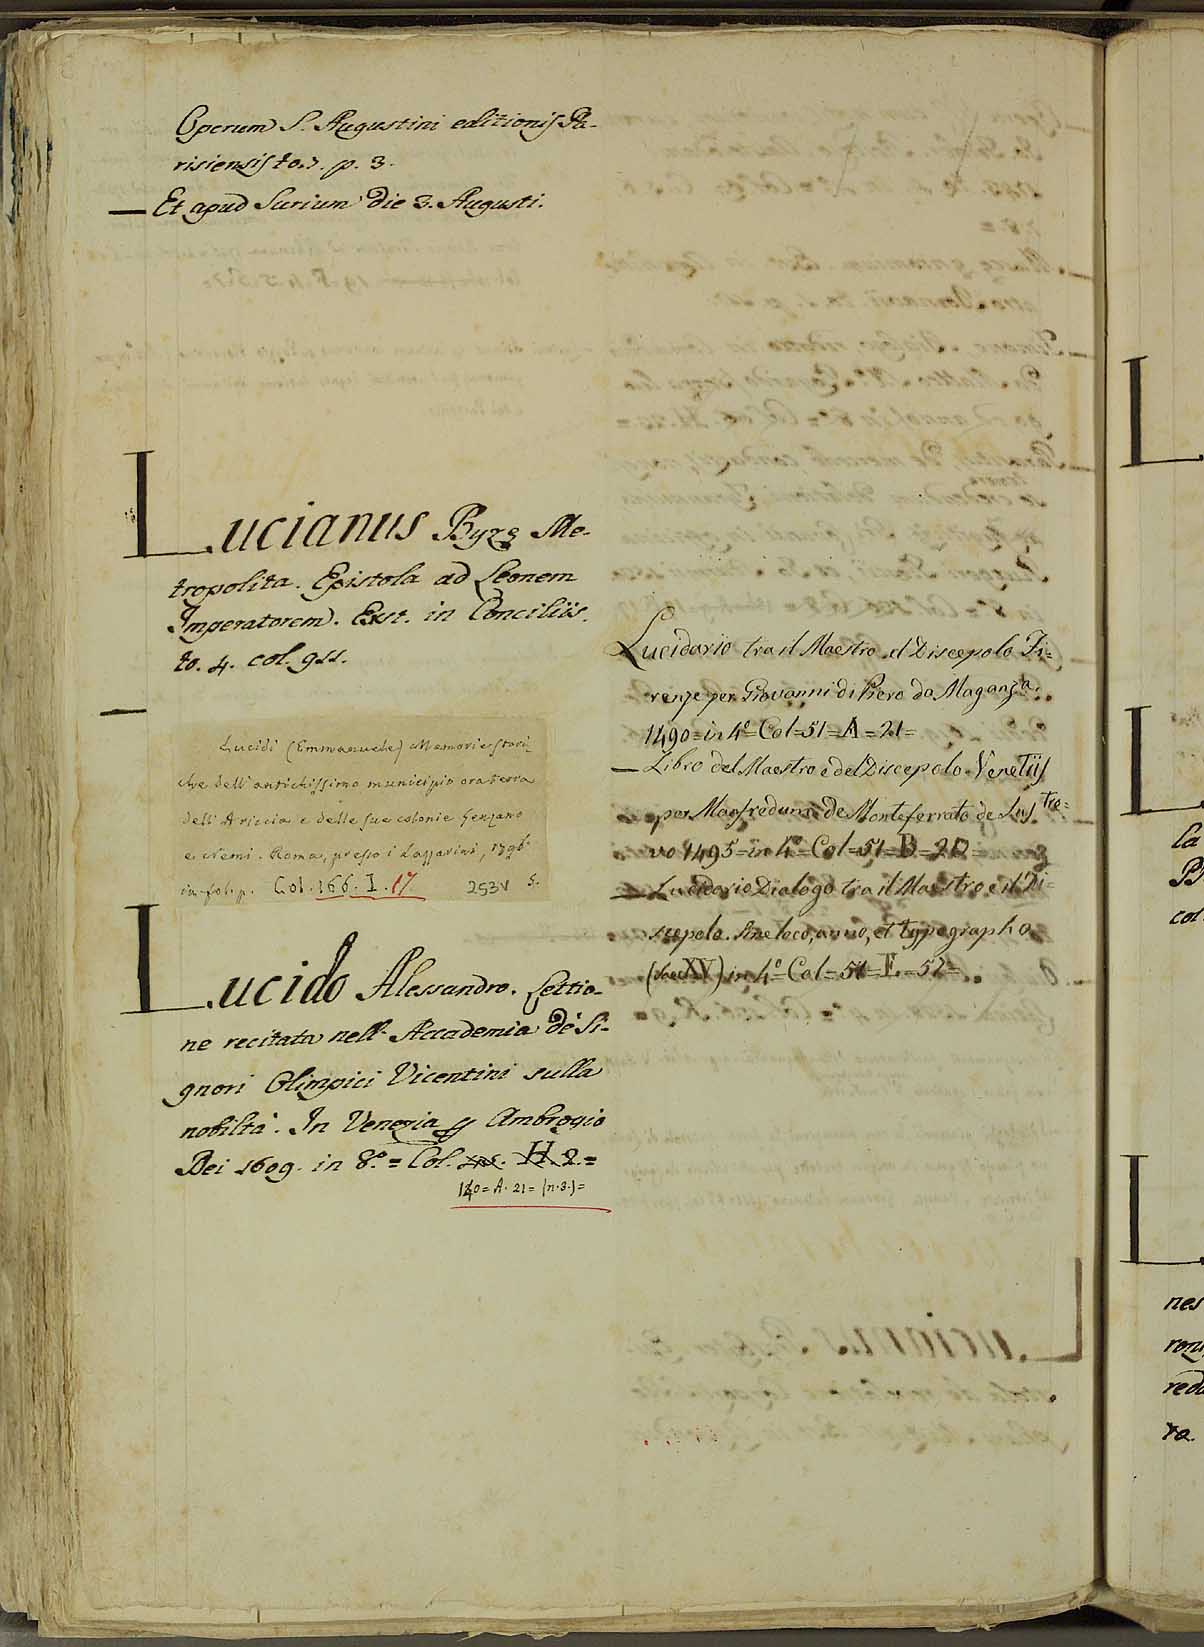 Operum S. Augustini editionis Pa-
risiensis to. 7. p. 3.
— Et apud Surium die 3. Augusti.
Lucianus Byzæ Me-
tropolita. Epistola ad Leonem
Imperatorem. Exst. in Conciliis.
to. 4. col. 911.
Lucidi (Emmanuele) Memorie stori-
che dell'antichissimo municipio ora terra
dell'Ariccia e delle sue colonie Genzano
e Nemi. Roma, presso i Lazzarini, 1796
in-fol. p. Col. 166. I. 17 253V S.
Lucido Alessandro. Lettio-
ne recitata nell'Accademia de' Si-
gnori Olimpici Vicentini sulla
nobiltà. In Venezia p Ambrogio
Dei 1609. in 8.º = Col. H. 2. =
140 = A. 21 = (n. 3.) =
Lucidario tra il Maestro el Discepolo Fi=
renze per Giovanni di Piero da Maganza.
1490 = in 4º Col = 51 = A = 21 =
— Libro del Maestro e del Discepolo. Venetiis
per Manfredum de Monteferrato de Sus tre=
vo 1495 = in 4º Col = 51 = B = 20 =
— Lucidario Dialogo tra il Maestro e il Di=
scepolo. Sine loco, anno, et typographo
(Sæc XV) in 4º Col = 51 = E = 52 =
L
L
la
col
L
nes
red
to.